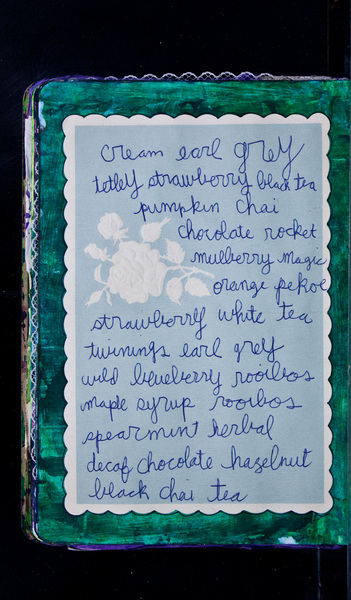 cream earl grey
tetley strawberry black tea
pumpkin chai
chocolate rocket
mulberry magic
orange pekoe
strawberry white tea
twinings earl grey
wild blueberry rooibos
maple syrup rooibos
spearmint herbal
decaf chocolate hazelnut
black chai tea